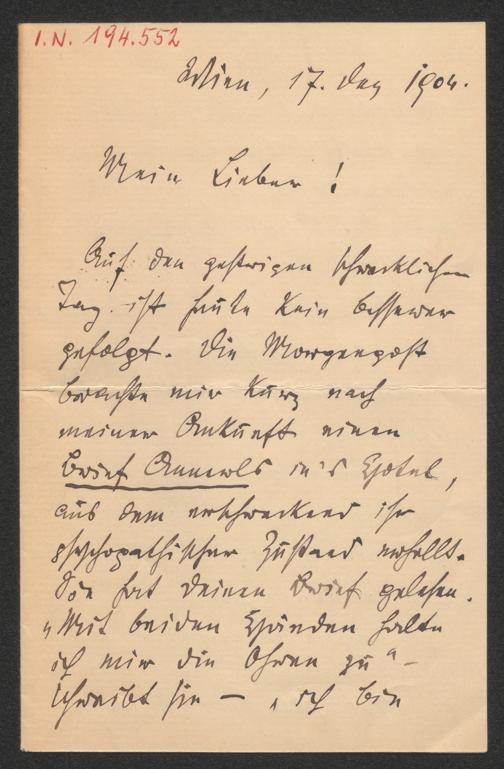 I.N. 194.552
Wien, 17. Dez 1904.
Mein Lieber!
Auf den gestrigen schrecklichen
Tag ist heute kein besserer
gefolgt. Die Morgenpost
brachte mir kurz nach
meiner Ankunft einen
Brief Annerls in's Hotel,
aus dem erschreckend ihr
psychopathischer Zustand erhellt.
Sie hat deinen Brief gelesen.
„Mit beiden Händen halte
ich mir die Ohren zu“ –
schreibt sie – „ich bin